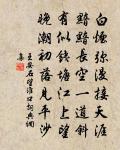 白煙弥漫接天涯
黯黯長空一道斜
有似錢塘江上望
晚潮初落見平沙
王安石望淮口詩